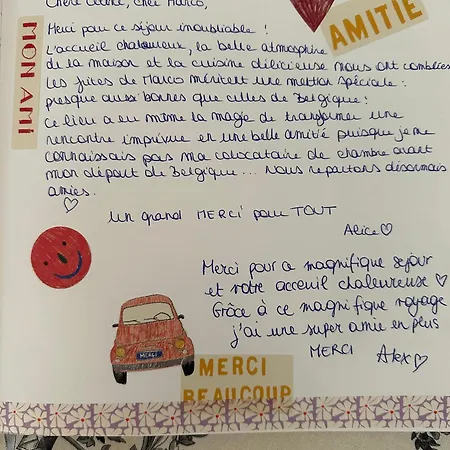 Chère Céline, cher Marco,
AMITIE
MON AMI
Merci pour ce séjour inoubliable !
L'accueil chaleureux, la belle atmosphère
de la maison et la cuisine délicieuse nous ont comblées
Les frites de Marco méritent une mention spéciale :
presque aussi bonnes que celles de Belgique !
Ce lieu a eu même la magie de transformer une
rencontre imprévue en une belle amitié puisque je ne
connaissais pas ma colocataire de chambre avant
mon départ de Belgique... Nous repartons désormais
amies.
Un grand MERCI pour TOUT
Alice
Merci pour ce magnifique séjour
et votre acceuil chaleureuse
Grâce à ce magnifique voyage
j'ai une super amie en plus
MERCI Alex
MERCI
MERCI
BEAUCOUP